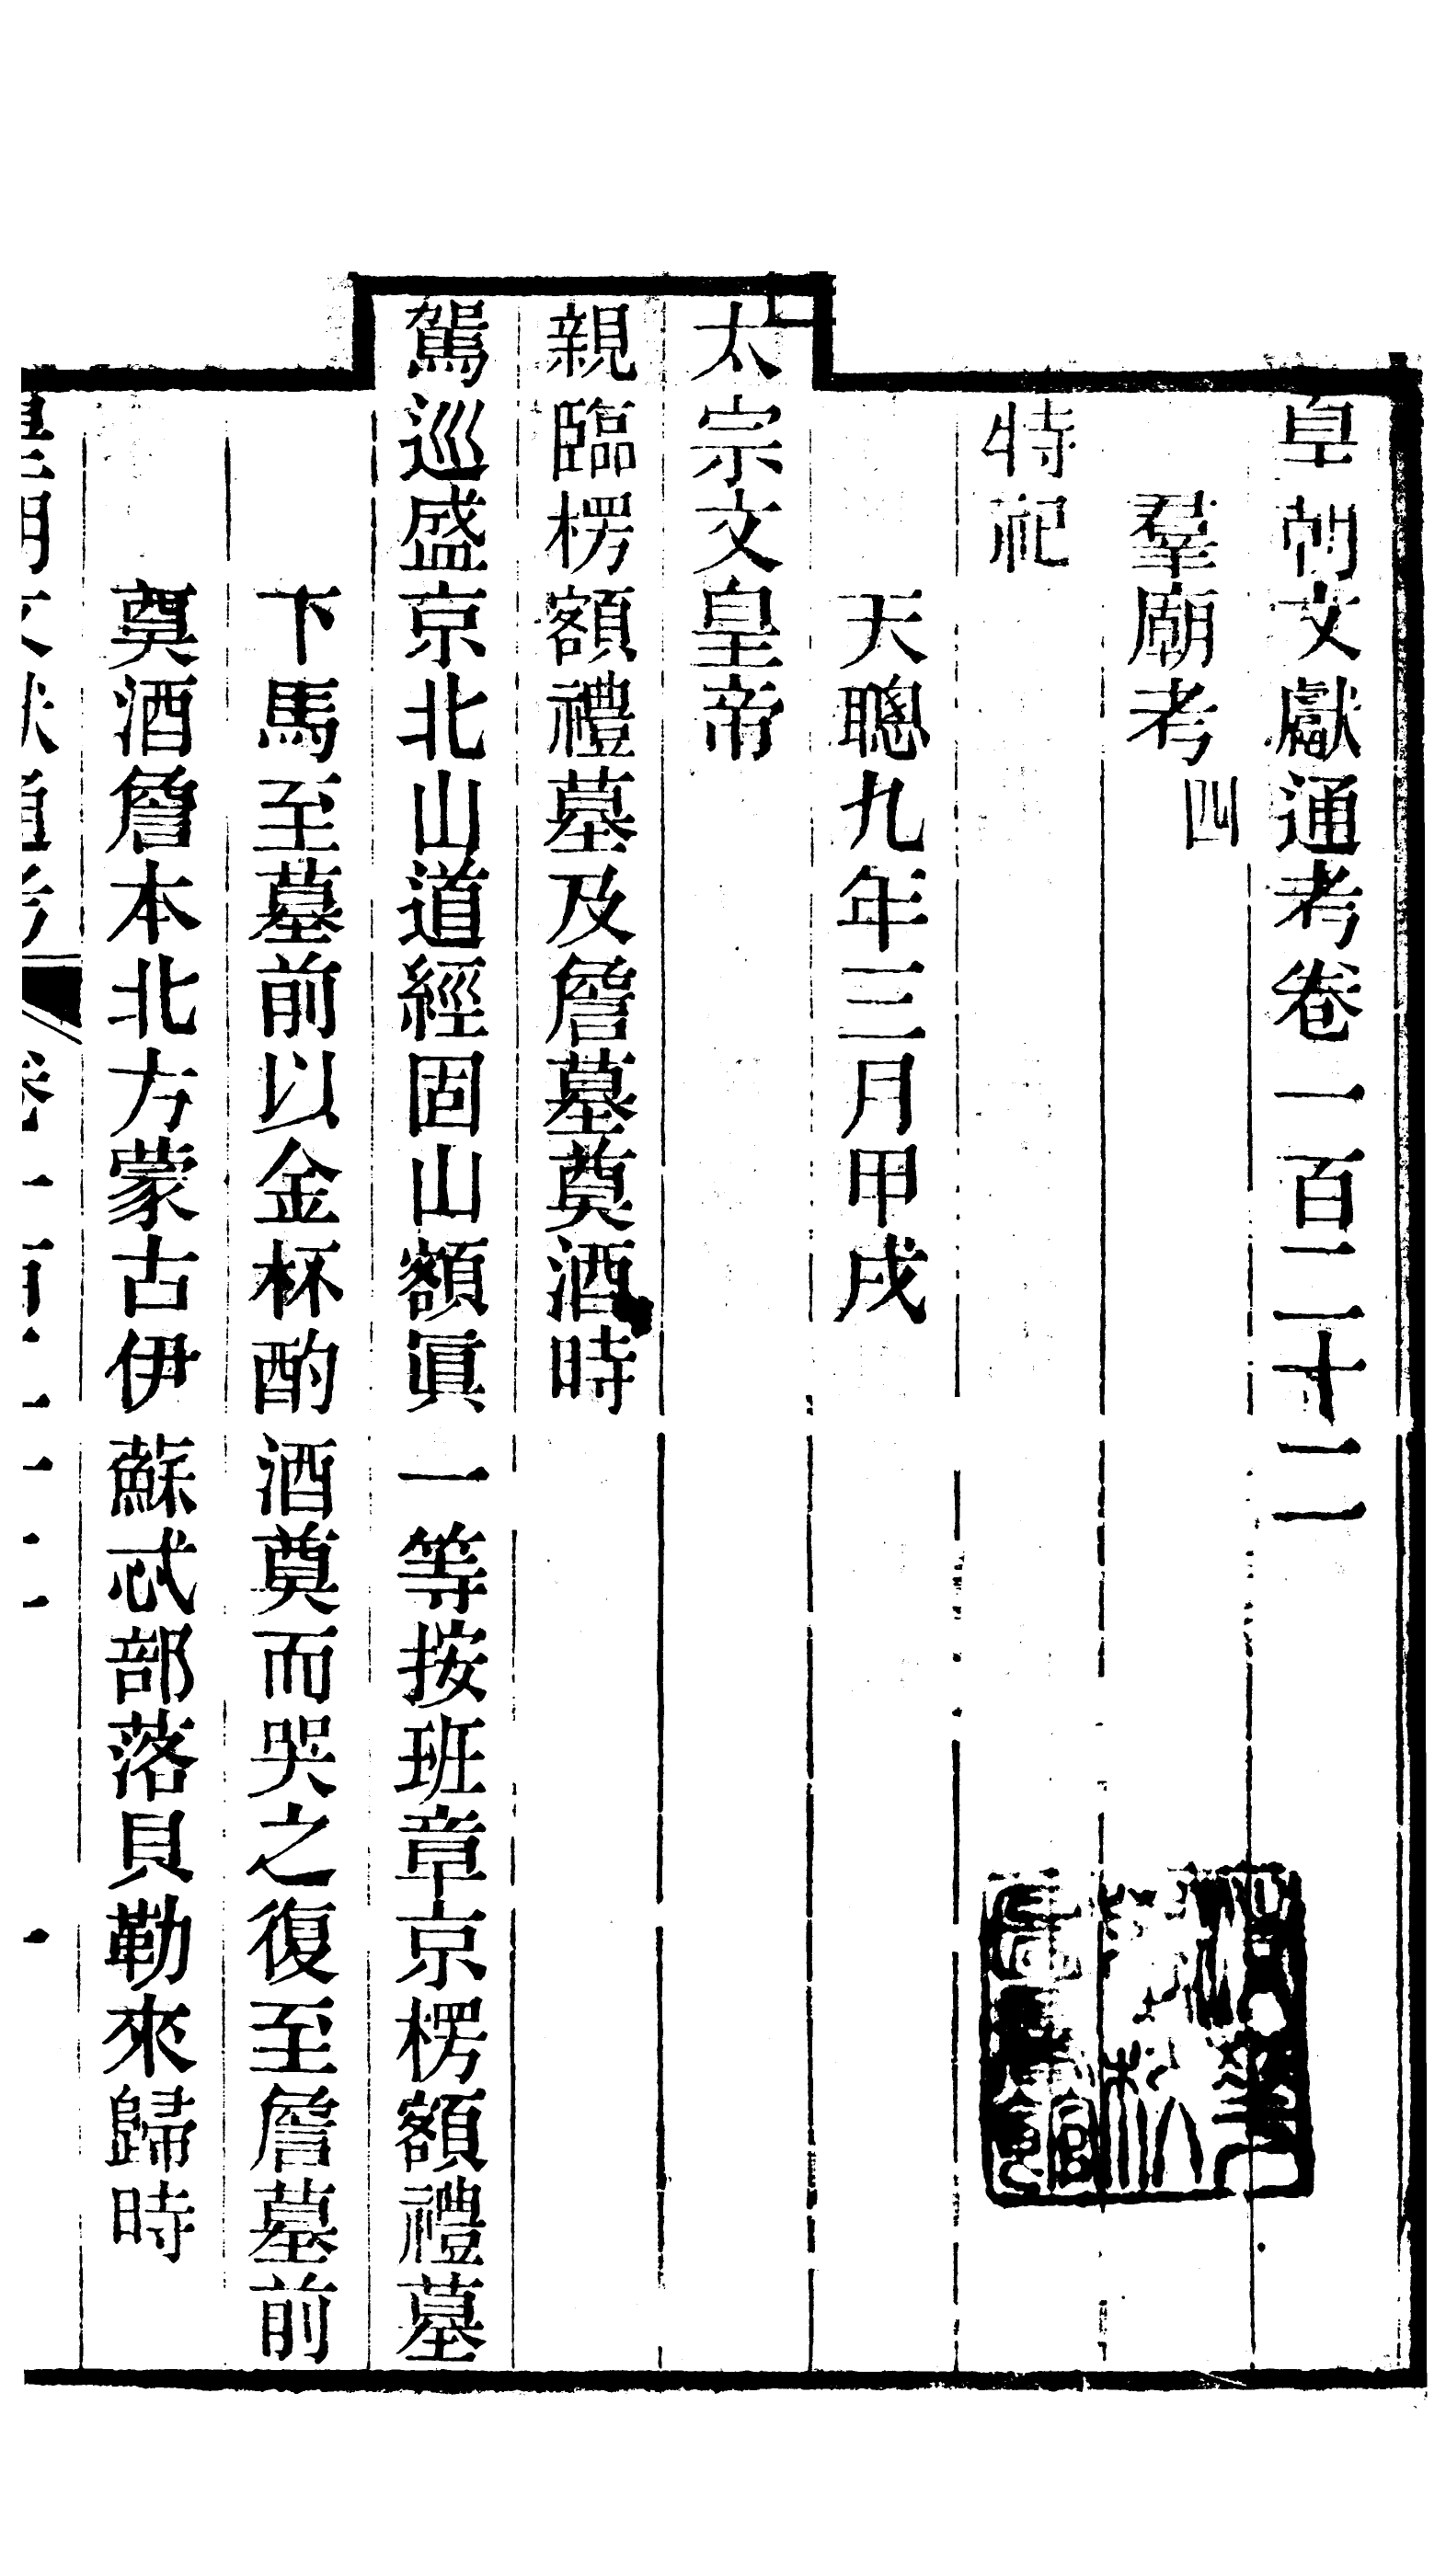 皇朝文獻通考卷一百二十二
羣廟考四
特祀
天聰九年三月甲戌
太宗文皇帝
親臨楞額禮墓及詹墓奠酒時
駕巡盛京北山道經固山額眞一等按班章京楞額禮墓
下馬至墓前以金杯酌酒奠而哭之復至詹墓前
奠酒詹本北方蒙古伊蘇忒部落貝勒來歸時